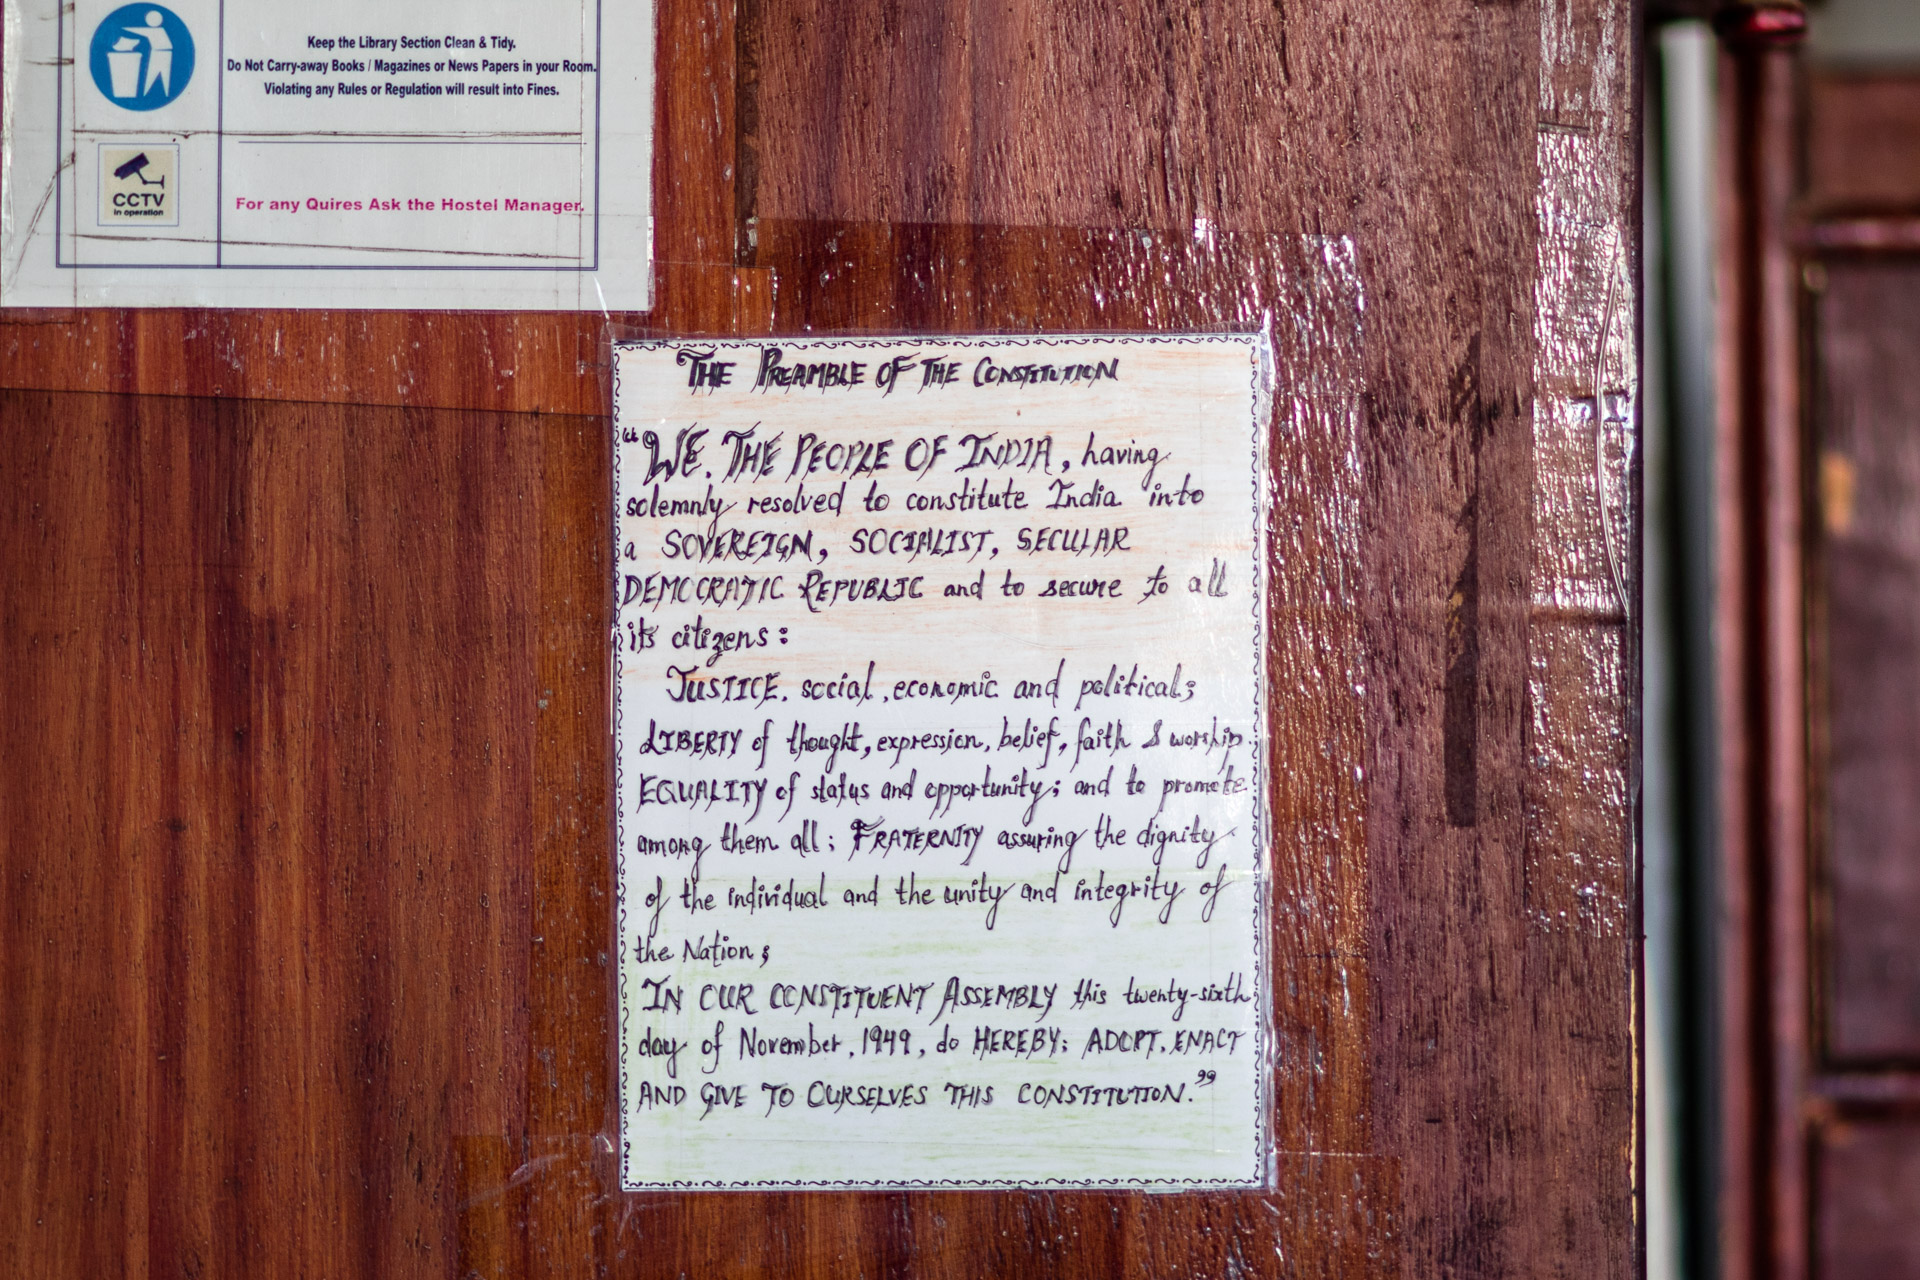 Keep the Library Section Clean & Tidy.
Do Not Carry-away Books / Magazines or News Papers in your Room.
Violating any Rules or Regulation will result into Fines.
CCTV
in operation
For any Quires Ask the Hostel Manager.
THE PREAMBLE OF THE CONSTITUTION
"WE, THE PEOPLE OF INDIA, having
solemnly resolved to constitute India into
a SOVEREIGN, SOCIALIST, SECULAR
DEMOCRATIC REPUBLIC and to secure to all
its citizens:
JUSTICE, social, economic and political;
LIBERTY of thought, expression, belief, faith & worship.
EQUALITY of status and opportunity; and to promote
among them all; FRATERNITY assuring the dignity
of the individual and the unity and integrity of
the Nation;
IN OUR CONSTITUENT ASSEMBLY this twenty-sixth
day of November, 1949, do HEREBY; ADOPT, ENACT
AND GIVE TO OURSELVES THIS CONSTITUTION."